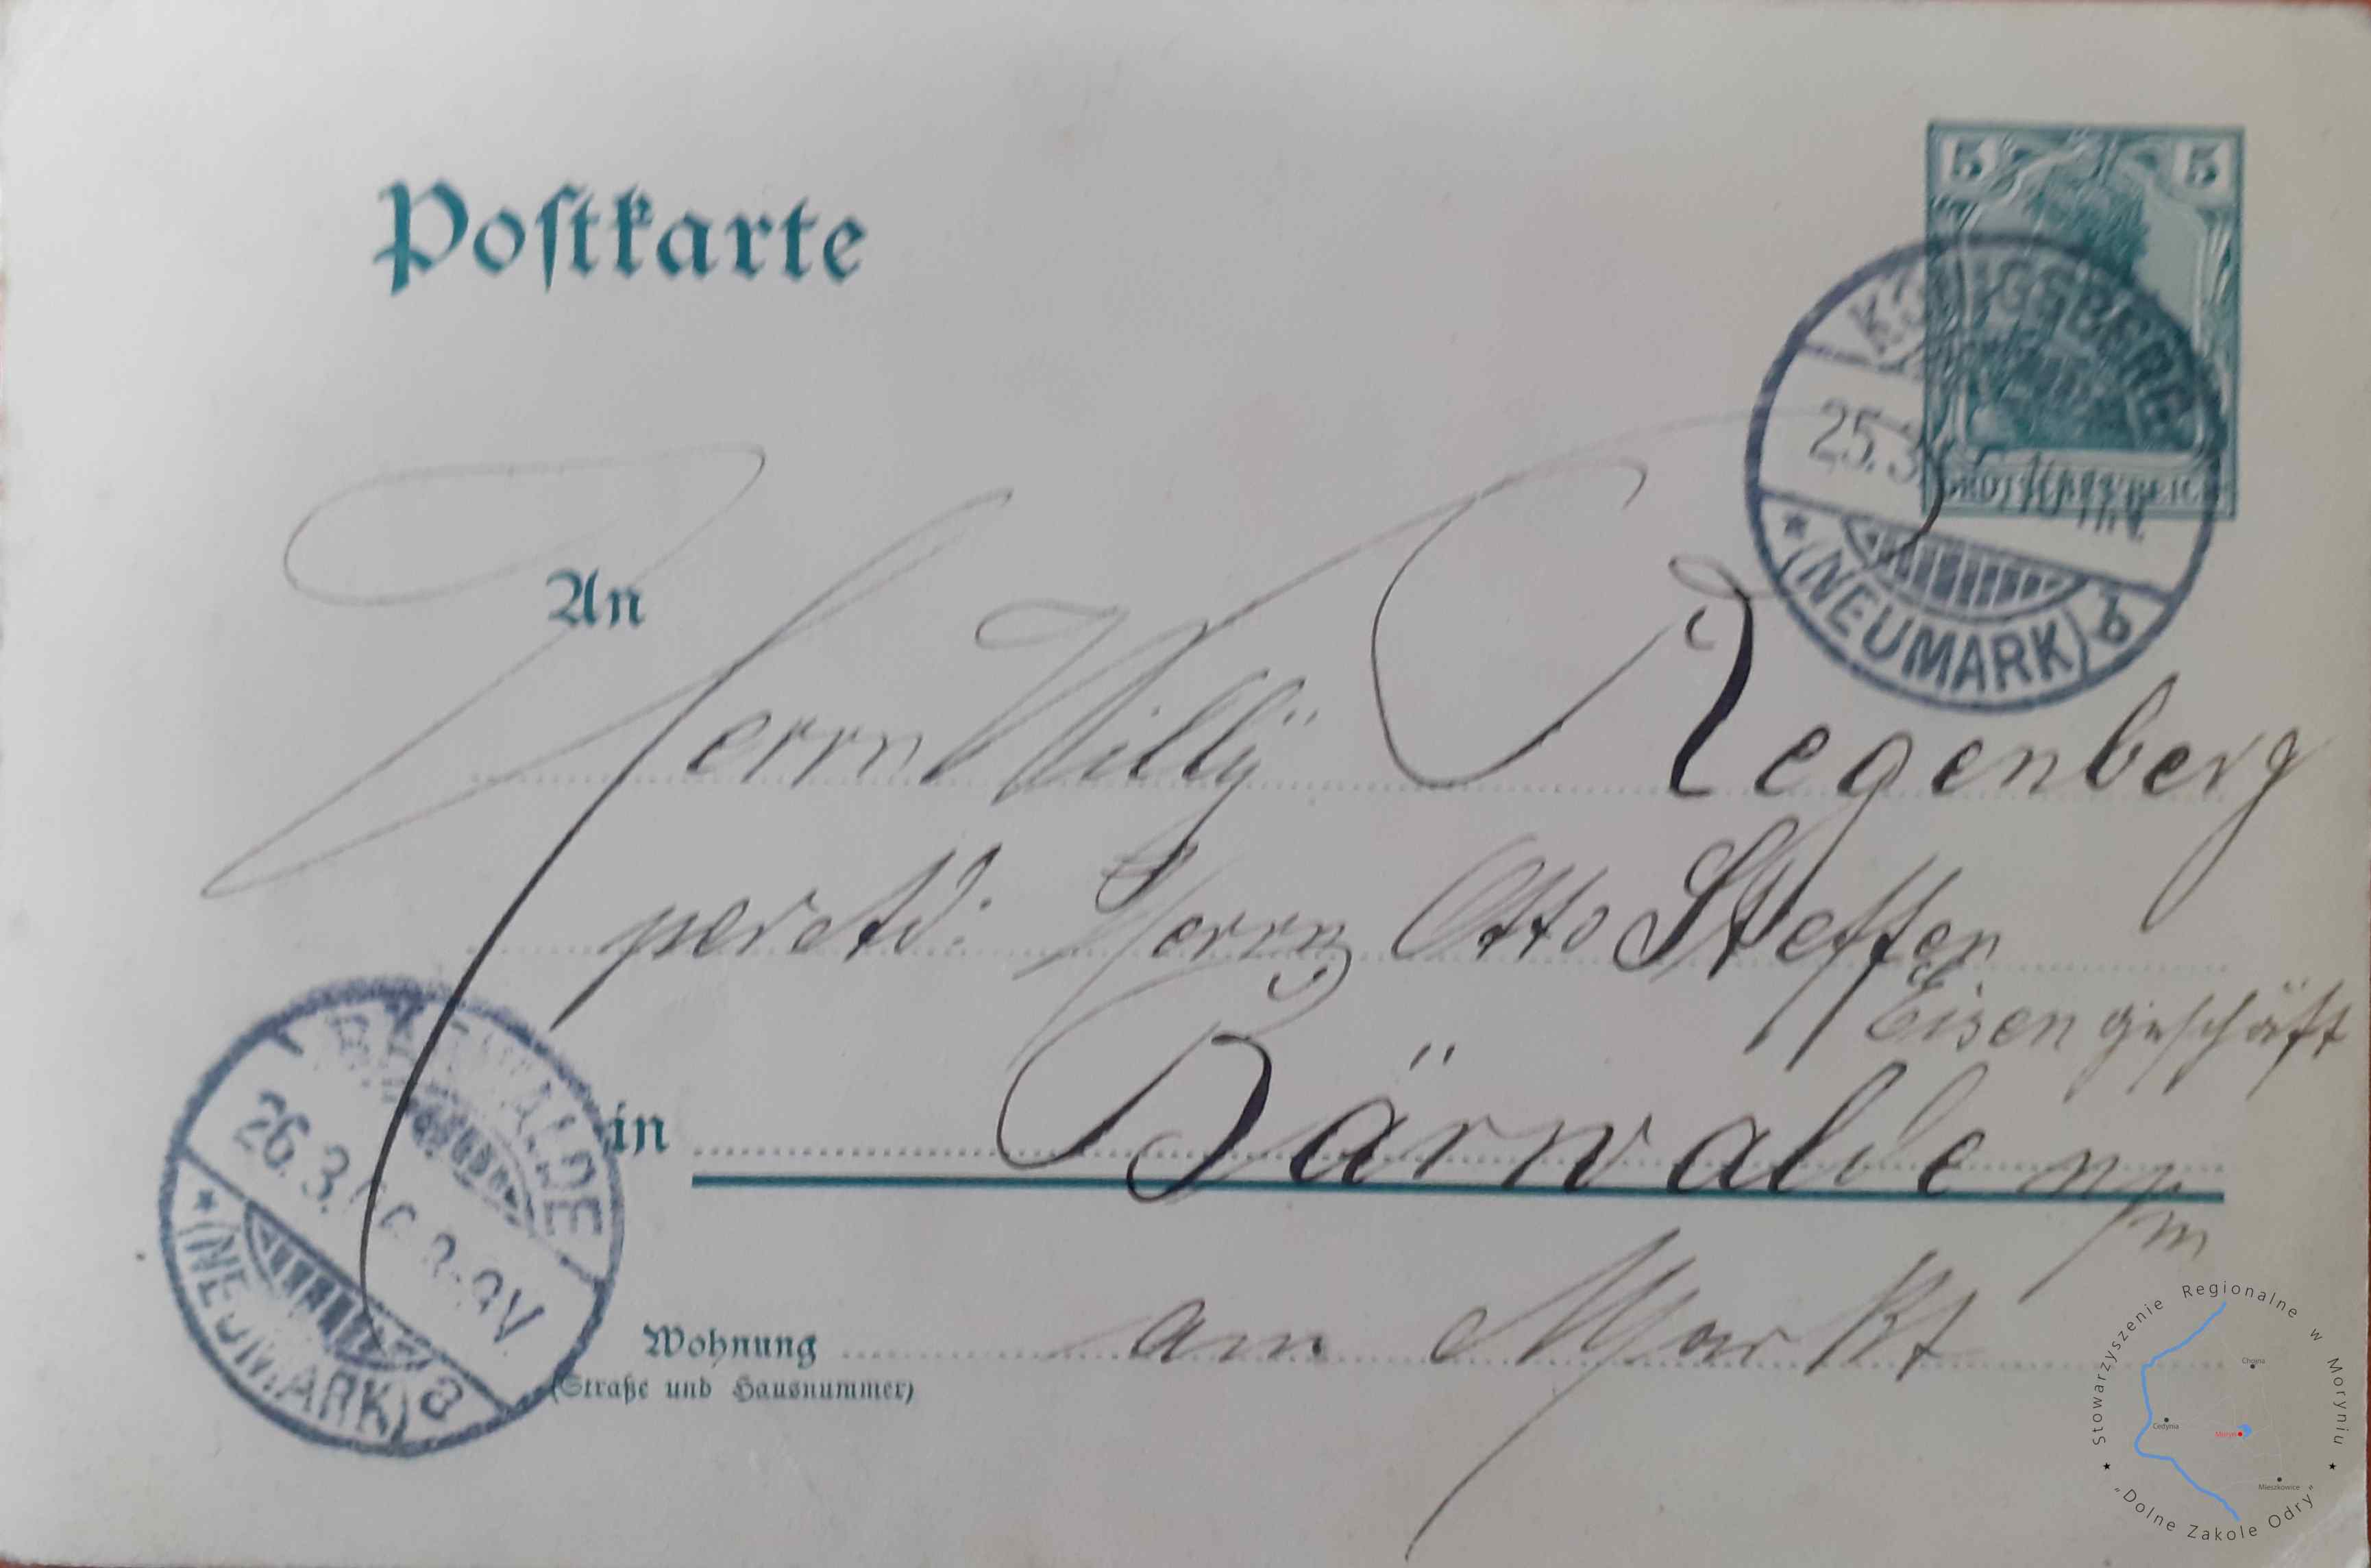 Postkarte
5 5
DEUTSCHES REICH
KÖNIGSBERG
25.3
(NEUMARK) b
An
Herrn Willÿ Regenberg
Herrn Otto Steffen
Eisengeschäft
in Bärwalde n/m
BÄRWALDE
26.3. 8-9V.
(NEUMARK) a
Wohnung am Markt
(Straße und Hausnummer)
Stowarzyszenie Regionalne w Moryniu
Chojna
Cedynia
Moryń
Mieszkowice
"Dolne Zakole Odry"